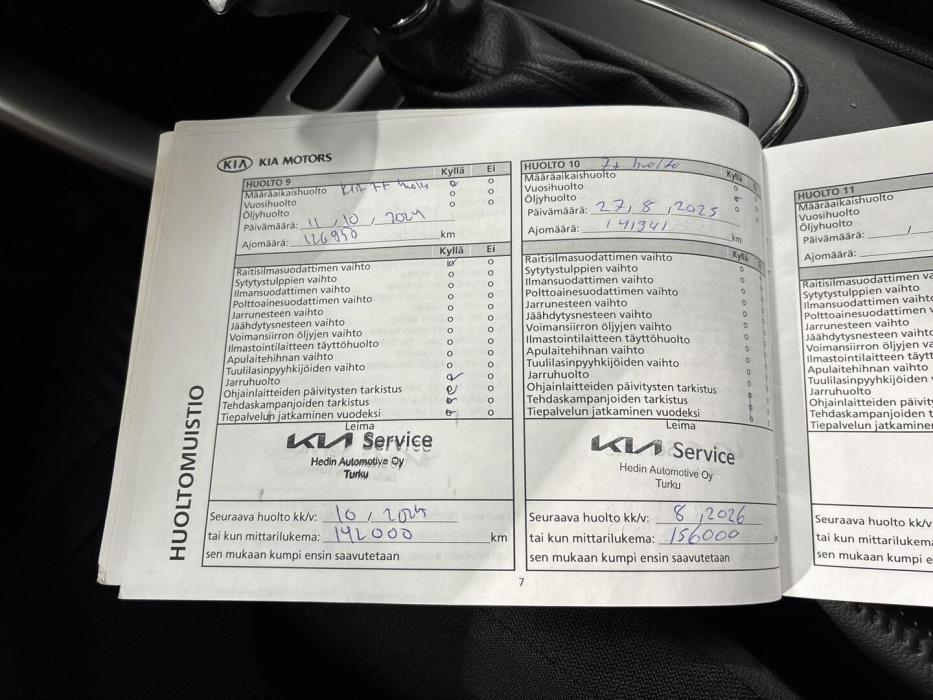 KIA KIA MOTORS
HUOLTOMUISTIO
HUOLTO 9 Kyllä Ei
Määräaikaishuolto
Vuosihuolto
Öljyhuolto
Päivämäärä: 11 / 10 / 2024
Ajomäärä: 126950 km
Kyllä Ei
Raitisilmasuodattimen vaihto
Sytytystulppien vaihto
Ilmansuodattimen vaihto
Polttoainesuodattimen vaihto
Jarrunesteen vaihto
Jäähdytysnesteen vaihto
Voimansiirron öljyjen vaihto
Ilmastointilaitteen täyttöhuolto
Apulaitehihnan vaihto
Tuulilasinpyyhkijöiden vaihto
Jarruhuolto
Ohjainlaitteiden päivitysten tarkistus
Tehdaskampanjoiden tarkistus
Tiepalvelun jatkaminen vuodeksi
Leima
KIA Service
Hedin Automotive Oy
Turku
Seuraava huolto kk/v: 10 / 2025
tai kun mittarilukema: 142000 km
sen mukaan kumpi ensin saavutetaan
HUOLTO 10 7+ huolto Kyllä
Määräaikaishuolto
Vuosihuolto
Öljyhuolto
Päivämäärä: 27 / 8 / 2025
Ajomäärä: 141341 km
Kyllä
Raitisilmasuodattimen vaihto
Sytytystulppien vaihto
Ilmansuodattimen vaihto
Polttoainesuodattimen vaihto
Jarrunesteen vaihto
Jäähdytysnesteen vaihto
Voimansiirron öljyjen vaihto
Ilmastointilaitteen täyttöhuolto
Apulaitehihnan vaihto
Tuulilasinpyyhkijöiden vaihto
Jarruhuolto
Ohjainlaitteiden päivitysten tarkistus
Tehdaskampanjoiden tarkistus
Tiepalvelun jatkaminen vuodeksi
Leima
KIA Service
Hedin Automotive Oy
Turku
Seuraava huolto kk/v: 8 / 2026
tai kun mittarilukema: 156000
sen mukaan kumpi ensin saavutetaan
7
HUOLTO 11
Määräaikaishuolto
Vuosihuolto
Öljyhuolto
Päivämäärä: /
Ajomäärä:
Raitisilmasuodattimen va
Sytytystulppien vaihto
Ilmansuodattimen vaihto
Polttoainesuodattimen v
Jarrunesteen vaihto
Jäähdytysnesteen vaihto
Voimansiirron öljyjen va
Ilmastointilaitteen täytt
Apulaitehihnan vaihto
Tuulilasinpyyhkijöiden
Jarruhuolto
Ohjainlaitteiden päivity
Tehdaskampanjoiden t
Tiepalvelun jatkamine
Seuraava huolto kk/v:
tai kun mittarilukem
sen mukaan kumpi e